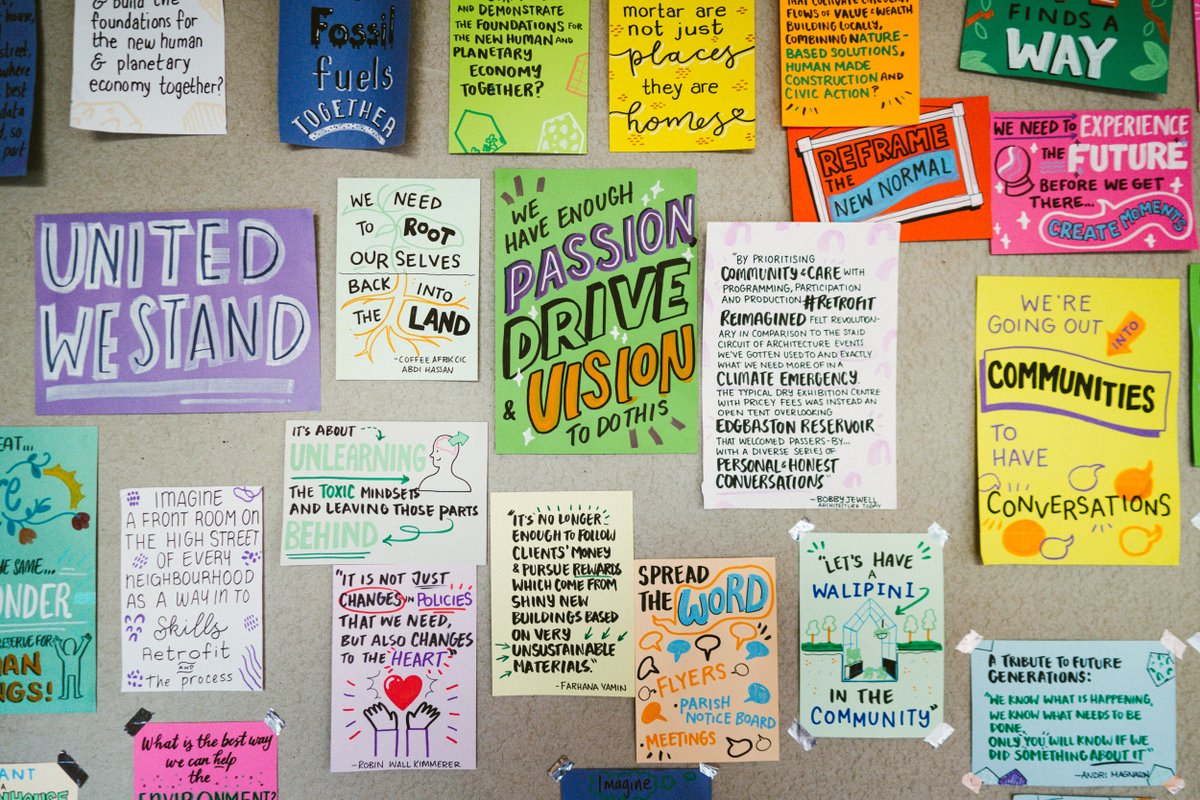 house,
street,
where
best
data
d, so
part
& build the
foundations for
the new human
& planetary
economy together?
Fossil
fuels
TOGETHER
AND DEMONSTRATE
THE FOUNDATIONS FOR
THE NEW HUMAN AND
PLANETARY
ECONOMY
TOGETHER?
mortar are
not just
places
they are
homes
THAT CULTIVATE CIRCULAR
FLOWS OF VALUE & WEALTH
BUILDING LOCALLY,
COMBINING NATURE-
BASED SOLUTIONS,
HUMAN MADE
CONSTRUCTION AND
CIVIC ACTION?
FINDS A
WAY
REFRAME
THE
NEW NORMAL
WE NEED TO EXPERIENCE
THE FUTURE
BEFORE WE GET
THERE...
CREATE MOMENTS
UNITED
WE STAND
WE NEED
TO ROOT
OURSELVES
BACK INTO
THE LAND
-COFFEE AFRIK CIC
ABDI HASSAN
WE
HAVE ENOUGH
PASSION
DRIVE
& VISION
TO DO THIS
"BY PRIORITISING
COMMUNITY & CARE WITH
PROGRAMMING, PARTICIPATION
AND PRODUCTION #RETROFIT
REIMAGINED FELT REVOLUTION-
ARY IN COMPARISON TO THE STAID
CIRCUIT OF ARCHITECTURE EVENTS
WE'VE GOTTEN USED TO AND EXACTLY
WHAT WE NEED MORE OF IN A
CLIMATE EMERGENCY.
THE TYPICAL DRY EXHIBITION CENTRE
WITH PRICEY FEES WAS INSTEAD AN
OPEN TENT OVERLOOKING
EDGBASTON RESERVOIR
THAT WELCOMED PASSERS-BY...
WITH A DIVERSE SERIES OF
PERSONAL & HONEST
CONVERSATIONS"
-BOBBY JEWELL
ARCHITECTURE TODAY
WE'RE
GOING OUT
INTO
COMMUNITIES
TO
HAVE
CONVERSATIONS
EAT...
THE SAME...
ONDER
RESERVE FOR
MAN
NGS!
IMAGINE
A FRONT ROOM ON
THE HIGH STREET
OF EVERY
NEIGHBOURHOOD
AS A WAY IN TO
Skills
Retrofit
AND
the process
IT'S ABOUT
UNLEARNING
THE TOXIC MINDSETS
AND LEAVING THOSE PARTS
BEHIND
"IT IS NOT JUST
CHANGES IN POLICIES
THAT WE NEED,
BUT ALSO CHANGES
TO THE HEART"
-ROBIN WALL KIMMERER
"IT'S NO LONGER
ENOUGH TO FOLLOW
CLIENTS' MONEY
& PURSUE REWARDS
WHICH COME FROM
SHINY NEW
BUILDINGS BASED
ON VERY
UNSUSTAINABLE
MATERIALS."
-FARHANA YAMIN
SPREAD
THE WORD
FLYERS
PARISH
NOTICE BOARD
MEETINGS
"LET'S HAVE
A
WALIPINI
IN THE
COMMUNITY"
A TRIBUTE TO FUTURE
GENERATIONS:
"WE KNOW WHAT IS HAPPENING,
WE KNOW WHAT NEEDS TO BE
DONE.
ONLY YOU WILL KNOW IF WE
DID SOMETHING ABOUT IT"
-ANDRI MAGNASON
What is the best way
we can help
the
ENVIRONMENT?
ANT
Imagine